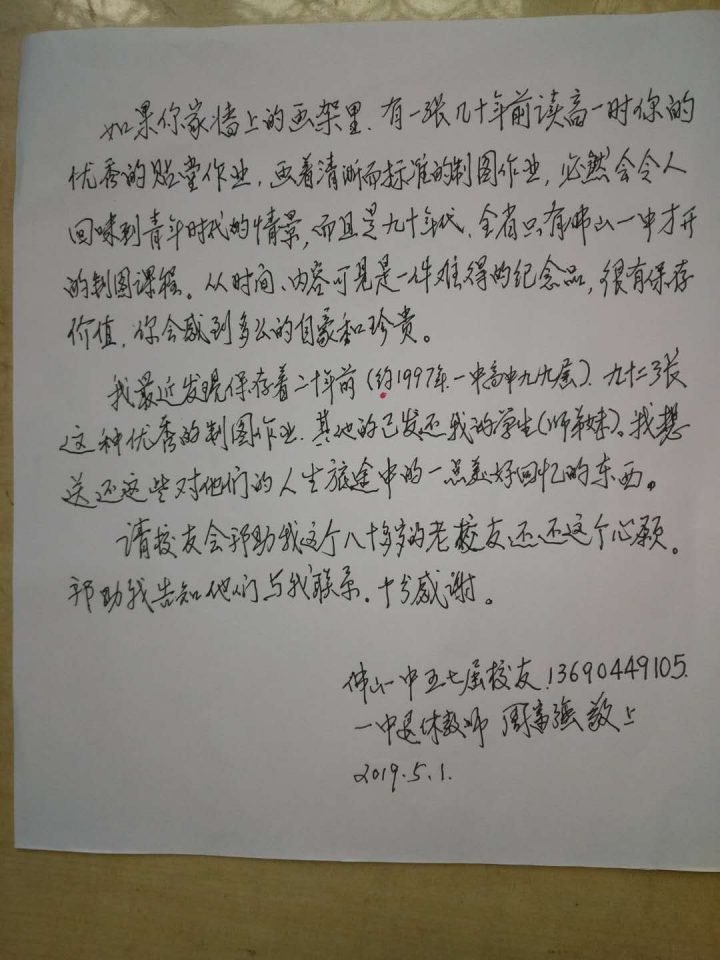 如果你家墙上的画架里.有一张几十年前读高一时你的
优秀的贴堂作业,画着清晰而标准的制图作业,必然会令人
回味到青年时代的情景,而且是九十年代.全省只有佛山一中才开
的制图课程。从时间、内容可见是一件难得的纪念品,很有保存
价值.你会感到多么的自豪和珍贵。
我最近发现保存着二十年前(约1997年.一中高中九九届).九十二张
这种优秀的制图作业.其他的已发还我的学生(师弟妹)。我想
送还这些对他们的人生旅途中的一点美好回忆的东西。
请校友会邦助我这个八十多岁的老校友还还这个心愿。
邦助我告知他们与我联系.十分感谢。
佛山一中五七届校友.13690449105.
一中退休教师 周富强 敬上
2019.5.1.